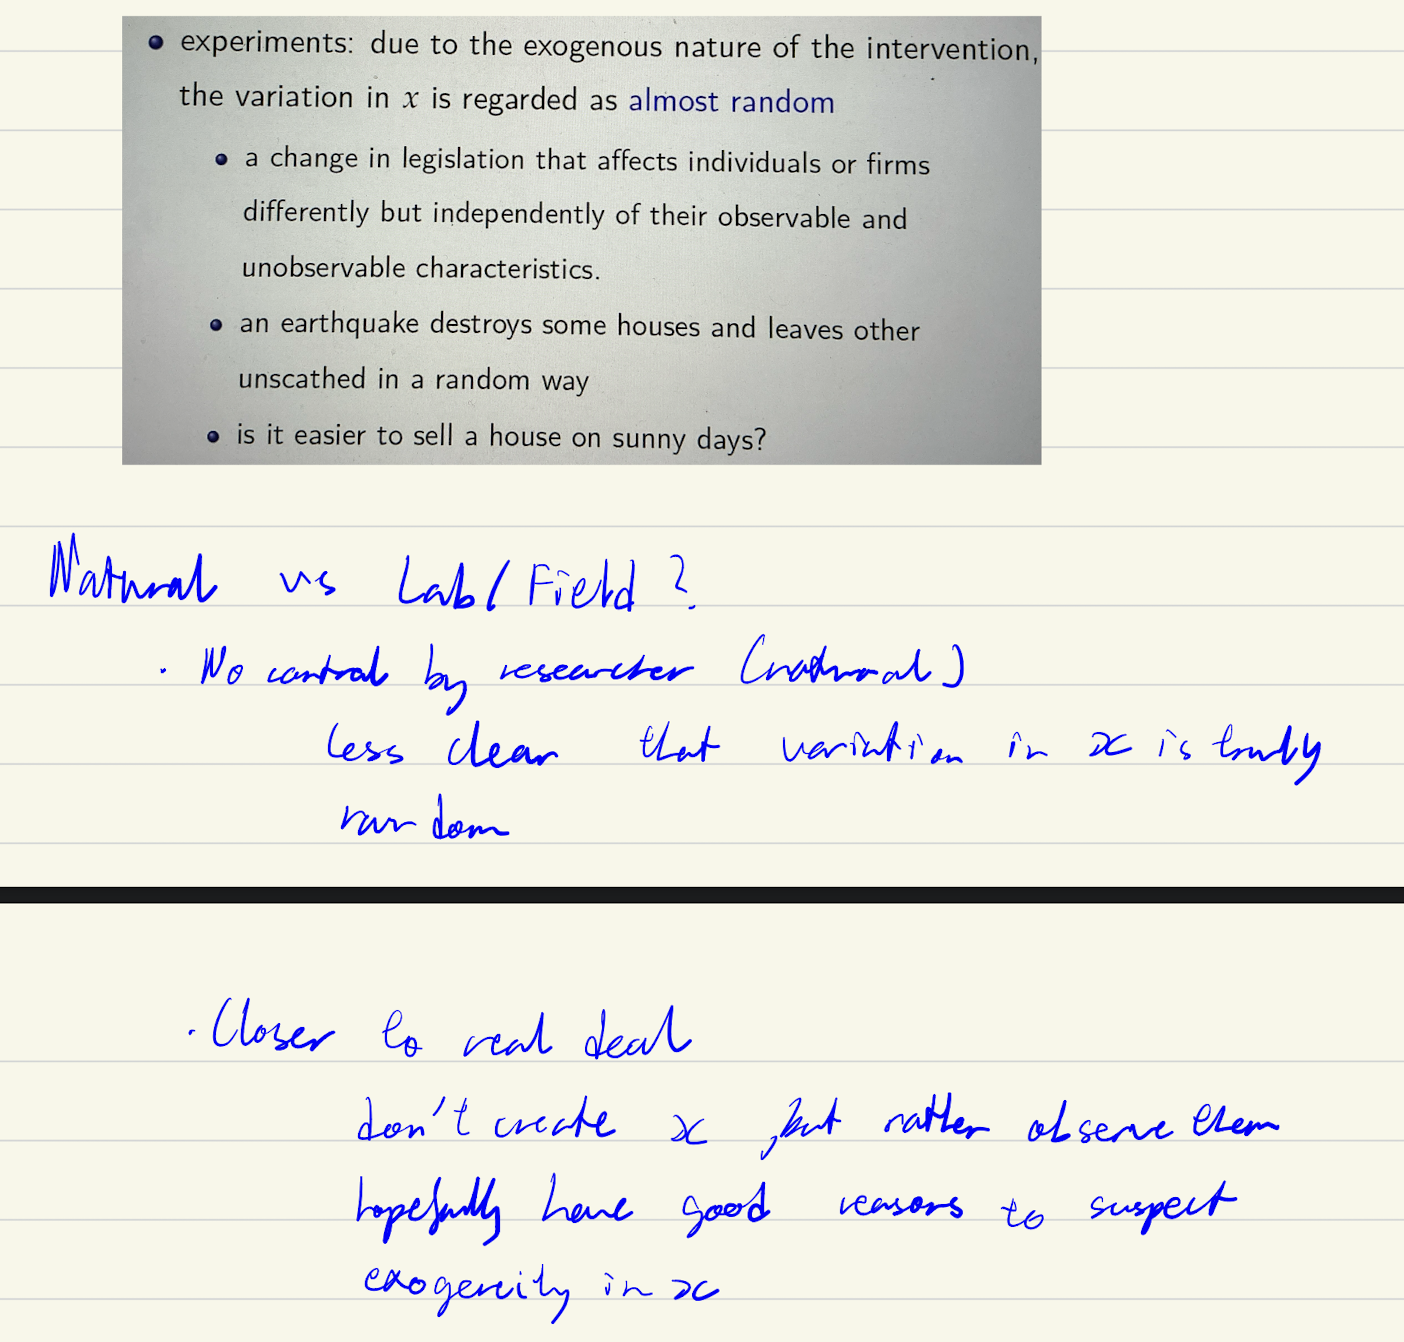 experiments: due to the exogenous nature of the intervention,
the variation in x is regarded as almost random
a change in legislation that affects individuals or firms
differently but independently of their observable and
unobservable characteristics.
an earthquake destroys some houses and leaves other
unscathed in a random way
is it easier to sell a house on sunny days?
Natural vs Lab/Field?
· No control by researcher (natural)
less clear that variation in x is truly
random
· Closer to real deal
don't create x, but rather observe them
hopefully have good reasons to suspect
exogeneity in x